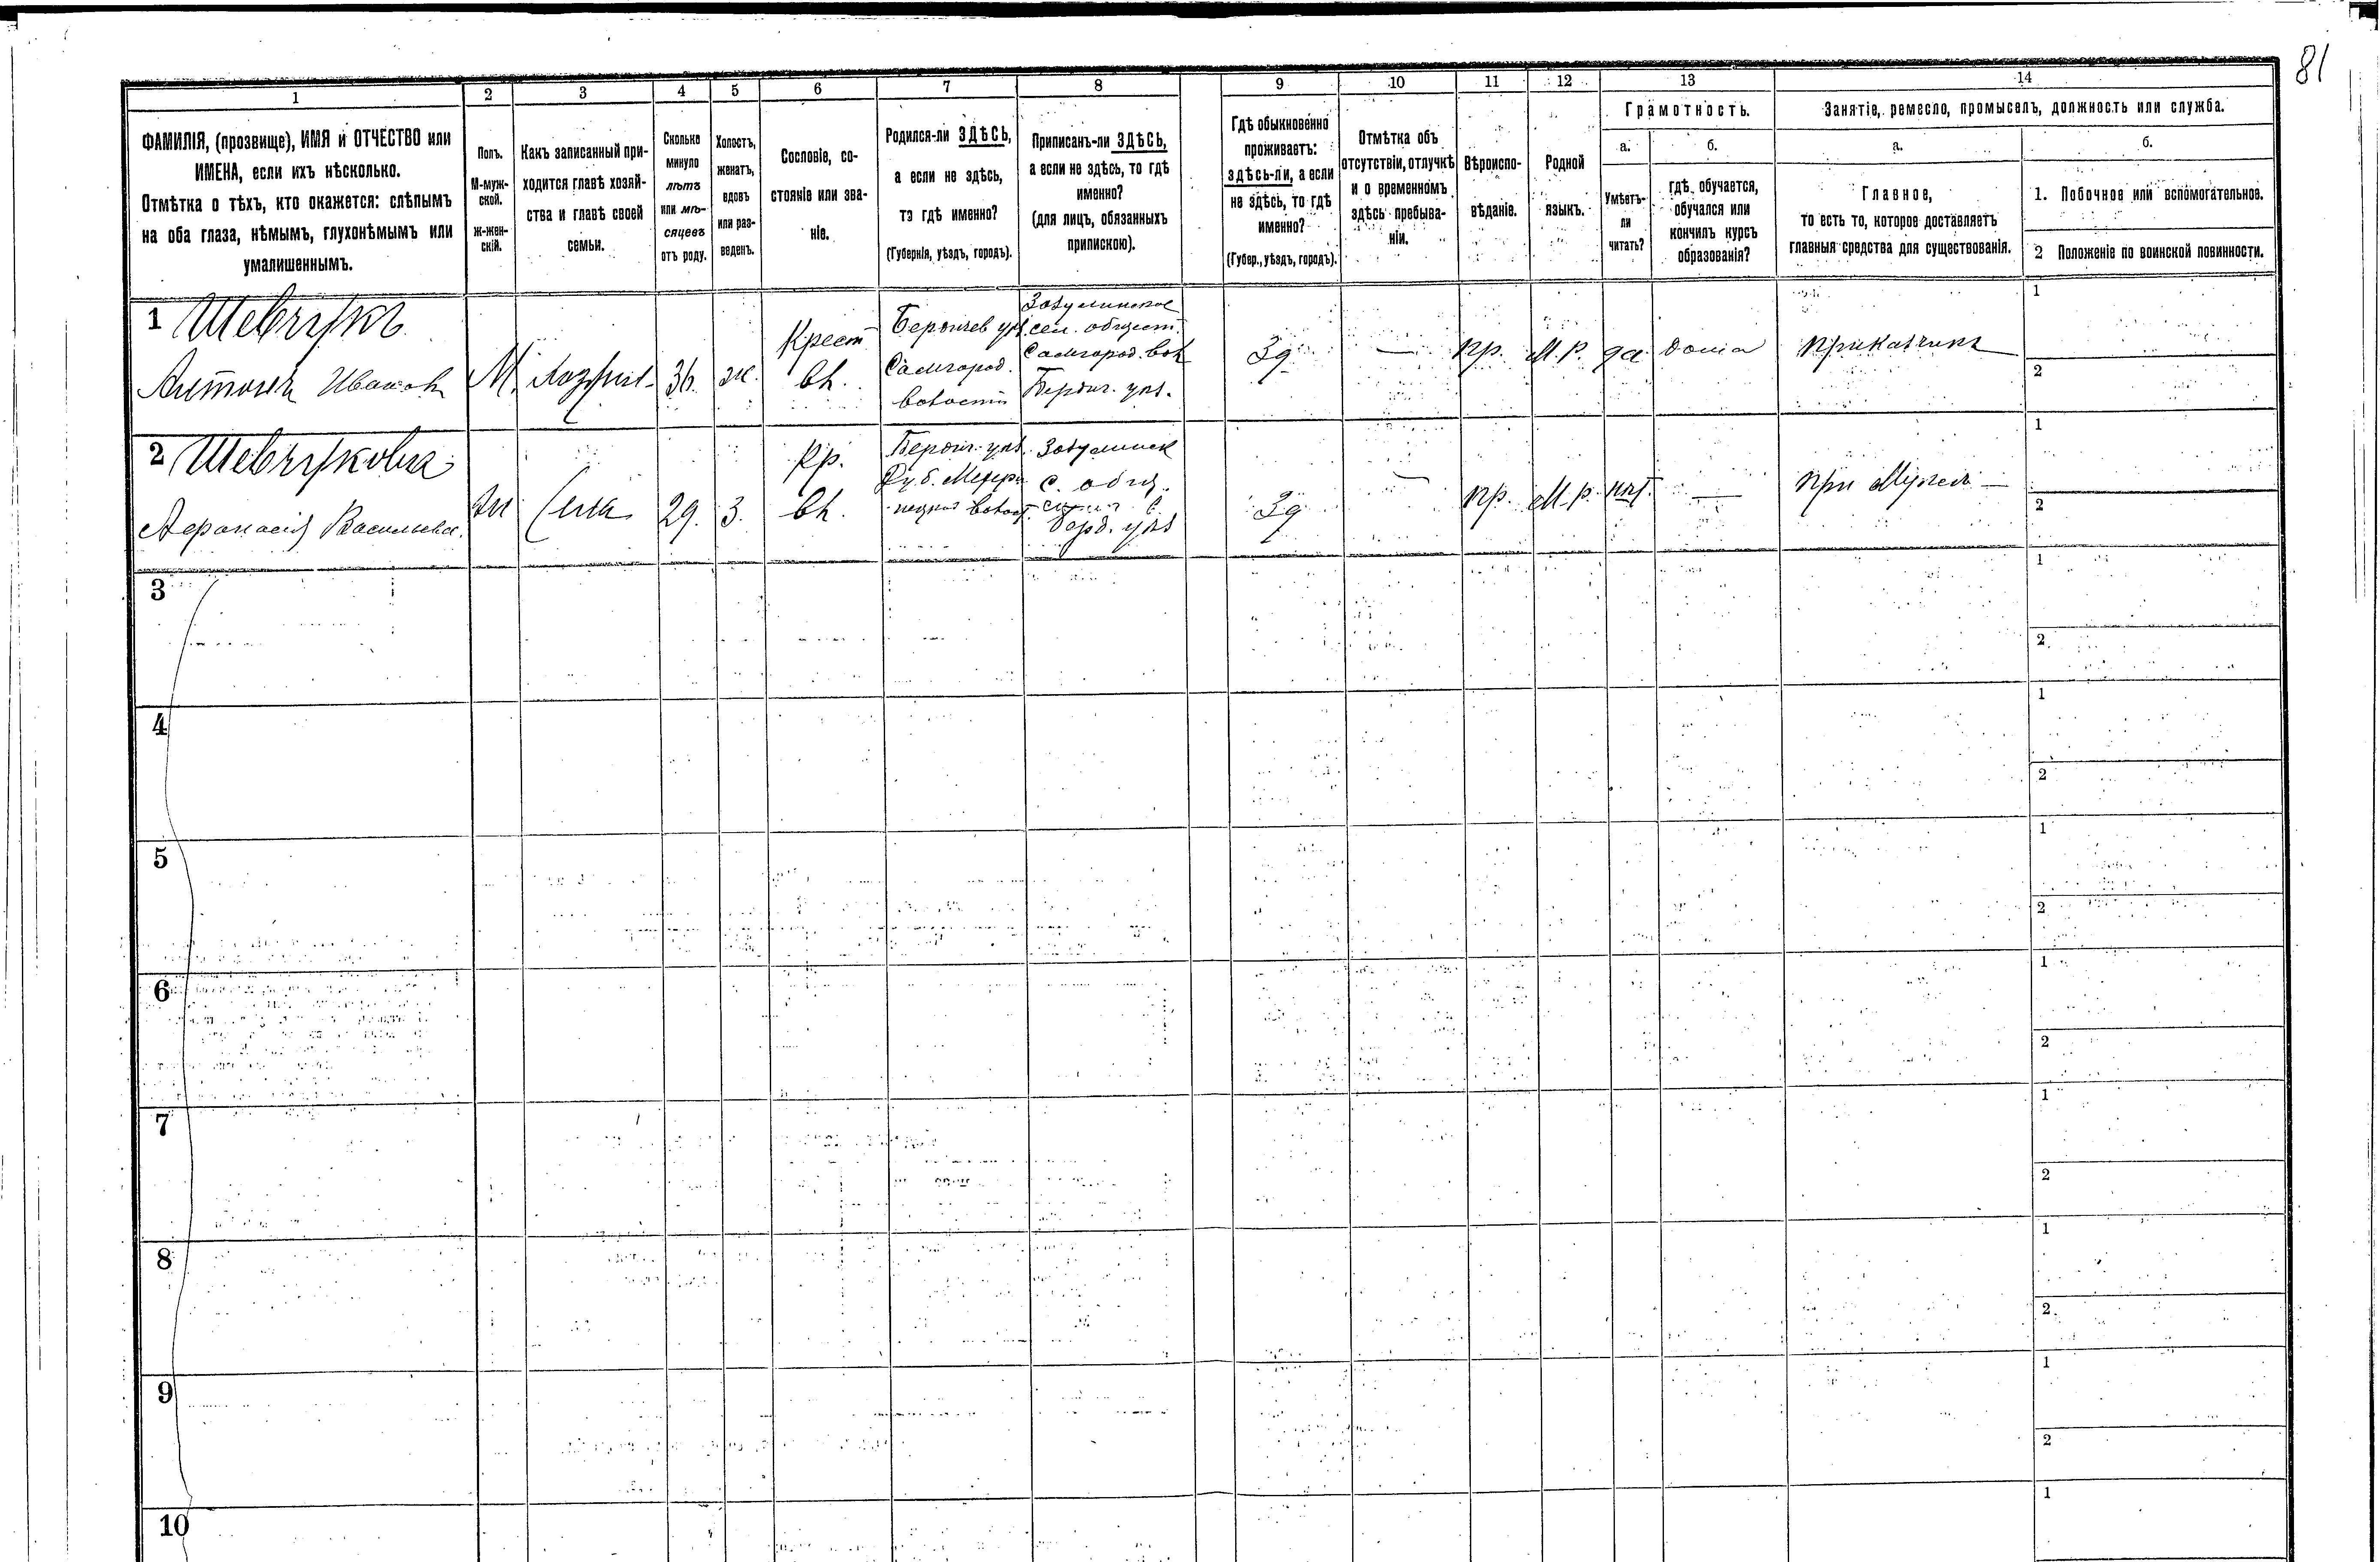 81
1 2 3 4 5 6 7 8 9 10 11 12 13 14
ФАМИЛІЯ, (прозвище), ИМЯ и ОТЧЕСТВО или
ИМЕНА, если ихъ нѣсколько.
Отмѣтка о тѣхъ, кто окажется: слѣпымъ
на оба глаза, нѣмымъ, глухонѣмымъ или
умалишеннымъ.
Полъ.
М-муж-
ской.
Ж-жен-
скій.
Какъ записанный при-
ходится главѣ хозяй-
ства и главѣ своей
семьи.
Сколько
минуло
лѣтъ
или мѣ-
сяцевъ
отъ роду.
Холостъ,
женатъ,
вдовъ
или раз-
веденъ.
Сословіе, со-
стояніе или зва-
ніе.
Родился-ли ЗДѢСЬ,
а если не здѣсь,
то гдѣ именно?
(Губернія, уѣздъ, городъ).
Приписанъ-ли ЗДѢСЬ,
а если не здѣсь, то гдѣ
именно?
(для лицъ, обязанныхъ
припискою).
Гдѣ обыкновенно
проживаетъ:
здѣсь-ли, а если
не здѣсь, то гдѣ
именно?
(Губер., уѣздъ, городъ).
Отмѣтка объ
отсутствіи, отлучкѣ
и о временномъ
здѣсь пребыва-
ніи.
Вѣроиспо-
вѣданіе.
Родной
языкъ.
Грамотность.
а.
Умѣетъ-
ли
читать?
б.
гдѣ обучается,
обучался или
кончилъ курсъ
образованія?
Занятіе, ремесло, промыселъ, должность или служба.
а.
Главное,
то есть то, которое доставляетъ
главныя средства для существованія.
б.
1. Побочное или вспомогательное.
2 Положеніе по воинской повинности.
1 Шевчукъ
Антонъ Ивановъ
М.
36.
ж.
Крест
вл.
Бердичев уѣз.
Самгород.
волости
сел. общест.
Самгород. вол
Бердич. уѣз.
Зд
—
пр.
М. Р.
да
дома
приказчикъ
1
2
2 Шевчукова
Афанасія Васильева.
жн
29.
З.
Кр.
вл.
Бердич. уѣз.
с. общ.
Берд. уѣз
Зд
—
пр.
М. р.
нѣт.
—
при Мужѣ —
1
2
3
1
2
4
1
2
5
1
2
6
1
2
7
1
2
8
1
2
9
1
2
10
1